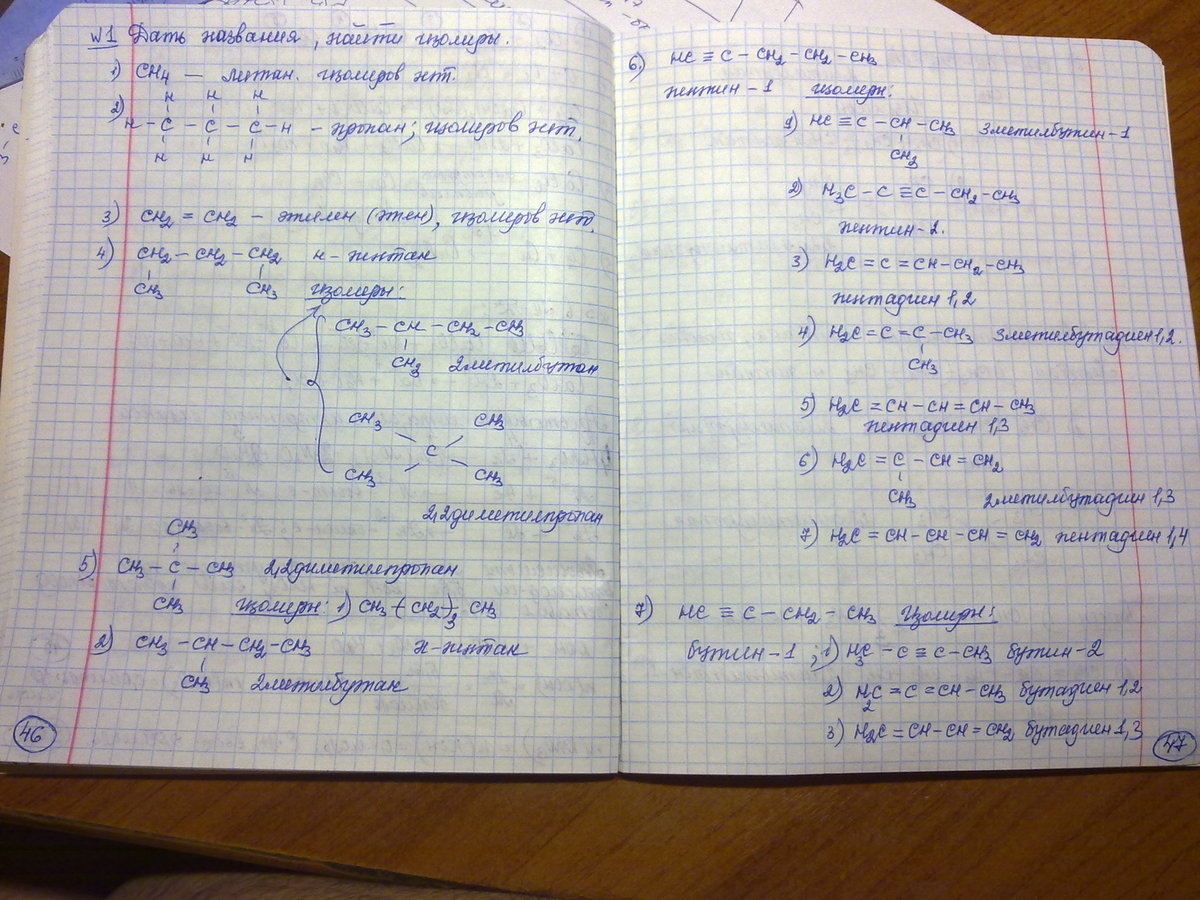 №1 Дать названия, найти изомеры.
1) CH4 — метан. изомеров нет.
H H H
2) H – C – C – C – H – пропан; изомеров нет.
H H H
3) CH2 = CH2 – этилен (этен), изомеров нет.
4) CH2 – CH2 – CH2 н – пентан
CH3 CH3 изомеры:
CH3 – CH – CH2 – CH3
CH3 2метилбутан
CH3 CH3
C
CH3 CH3
2,2диметилпропан
CH3
5) CH3 – C – CH3 2,2диметилпропан
CH3 изомеры: 1) CH3 – (CH2)3 – CH3
н-пентан
2) CH3 – CH – CH2 – CH3
CH3 2метилбутан
46
6) HC ≡ C – CH2 – CH2 – CH3
пентин – 1 изомеры:
1) HC ≡ C – CH – CH3 3метилбутин – 1
CH3
2) H3C – C ≡ C – CH2 – CH3
пентин – 2.
3) H2C = C = CH – CH2 – CH3
пентадиен 1,2
4) H2C = C = C – CH3 3метилбутадиен 1,2.
CH3
5) H2C = CH – CH = CH – CH3
пентадиен 1,3
6) H2C = C – CH = CH2
CH3 2метилбутадиен 1,3
7) H2C = CH – CH – CH = CH2 пентадиен 1,4
7) HC ≡ C – CH2 – CH3 изомеры:
бутин – 1 ; 1) H3C – C ≡ C – CH3 бутин – 2
2) H2C = C = CH – CH3 бутадиен 1,2
3) H2C = CH – CH = CH2 бутадиен 1,3
47